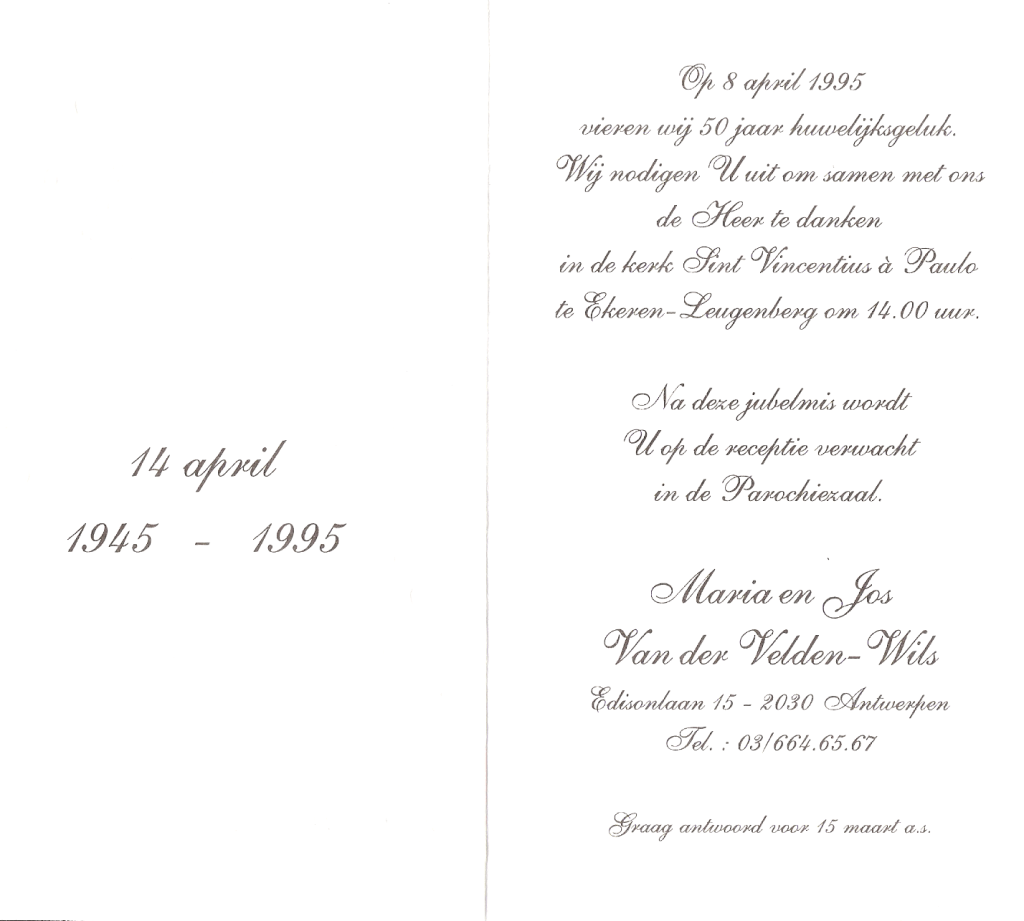 14 april
1945 - 1995
Op 8 april 1995
vieren wij 50 jaar huwelijksgeluk.
Wij nodigen U uit om samen met ons
de Heer te danken
in de kerk Sint Vincentius à Paulo
te Ekeren-Leugenberg om 14.00 uur.
Na deze jubelmis wordt
U op de receptie verwacht
in de Parochiezaal.
Maria en Jos
Van der Velden-Wils
Edisonlaan 15 - 2030 Antwerpen
Tel. : 03/664.65.67
Graag antwoord voor 15 maart a.s.